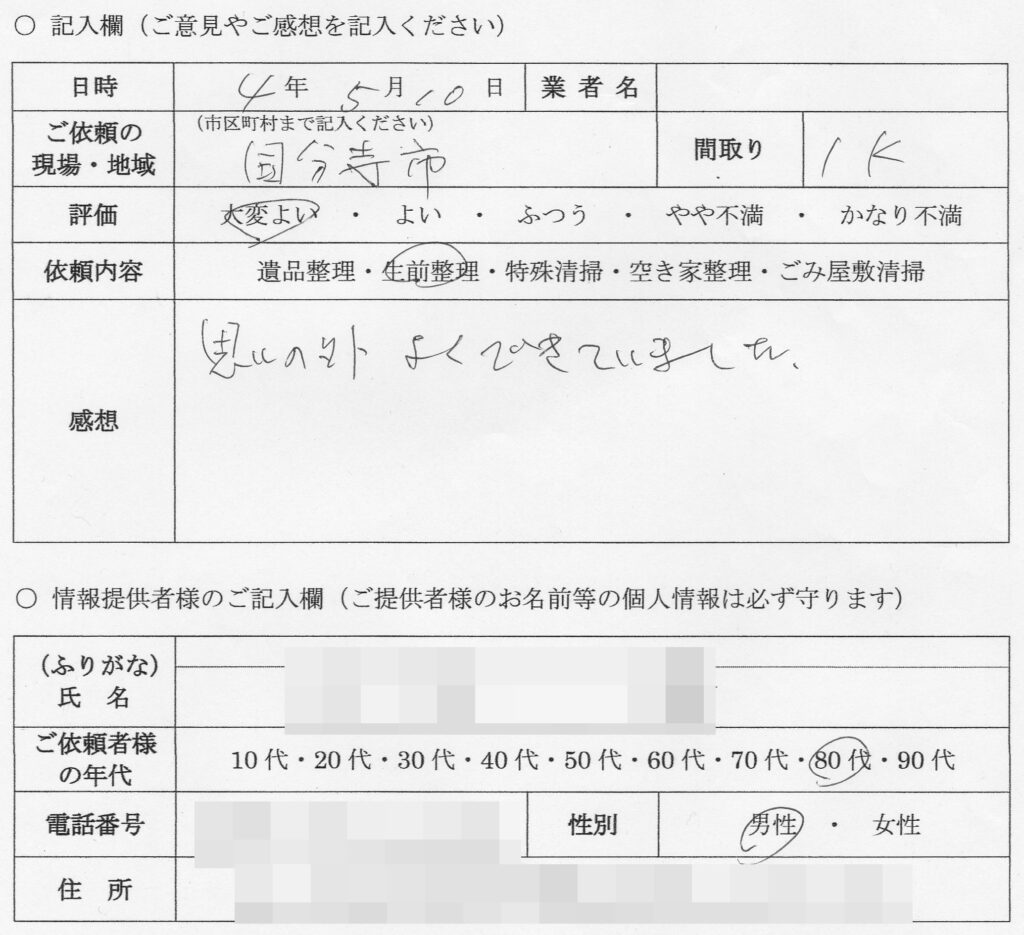 ○ 記入欄（ご意見やご感想を記入ください）
日時 4年 5月 10日 業者名
ご依頼の現場・地域 （市区町村まで記入ください） 国分寺市 間取り 1K
評価 大変よい ・ よい ・ ふつう ・ やや不満 ・ かなり不満
依頼内容 遺品整理・生前整理・特殊清掃・空き家整理・ごみ屋敷清掃
感想 思いの外 よくできていました.
○ 情報提供者様のご記入欄（ご提供者様のお名前等の個人情報は必ず守ります）
（ふりがな）
氏 名
ご依頼者様の年代 10代・20代・30代・40代・50代・60代・70代・80代・90代
電話番号 性別 男性 ・ 女性
住 所